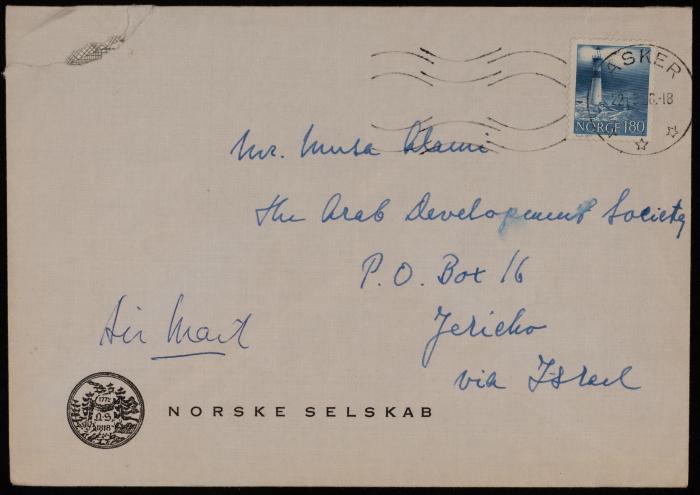 ASKER
NORGE 180
Mr. Musa Alami
The Arab Development Society
P.O. Box 16
Jericho
via Israel
Air Mail
1772
N.S.
1818
NORSKE SELSKAB